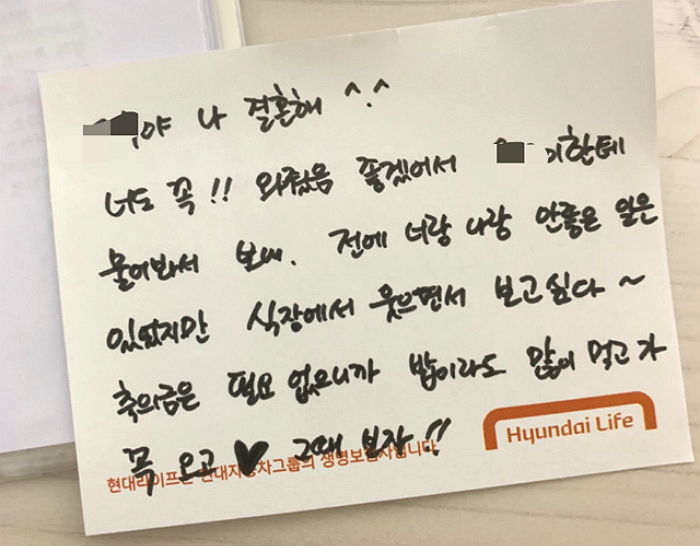 야 나 결혼해 ^.^
너도 꼭!! 와줬음 좋겠어서 이한테
물어봐서 보내. 전에 너랑 나랑 안좋은 일은
있었지만 식장에서 웃으면서 보고싶다~
축의금은 필요 없으니까 밥이라도 많이 먹고 가
꼭 오고 ♥ 그때 보자!!
Hyundai Life
현대라이프는 현대자동차그룹의 생명보험사입니다